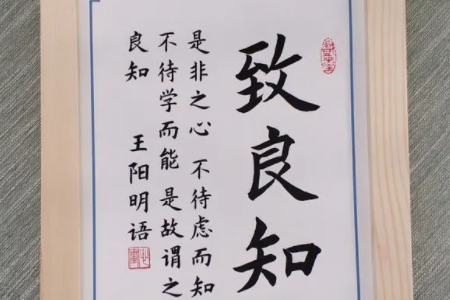 致良知
是非之心 不待虑而知
不待学而能 是故谓之
良知
王阳明语